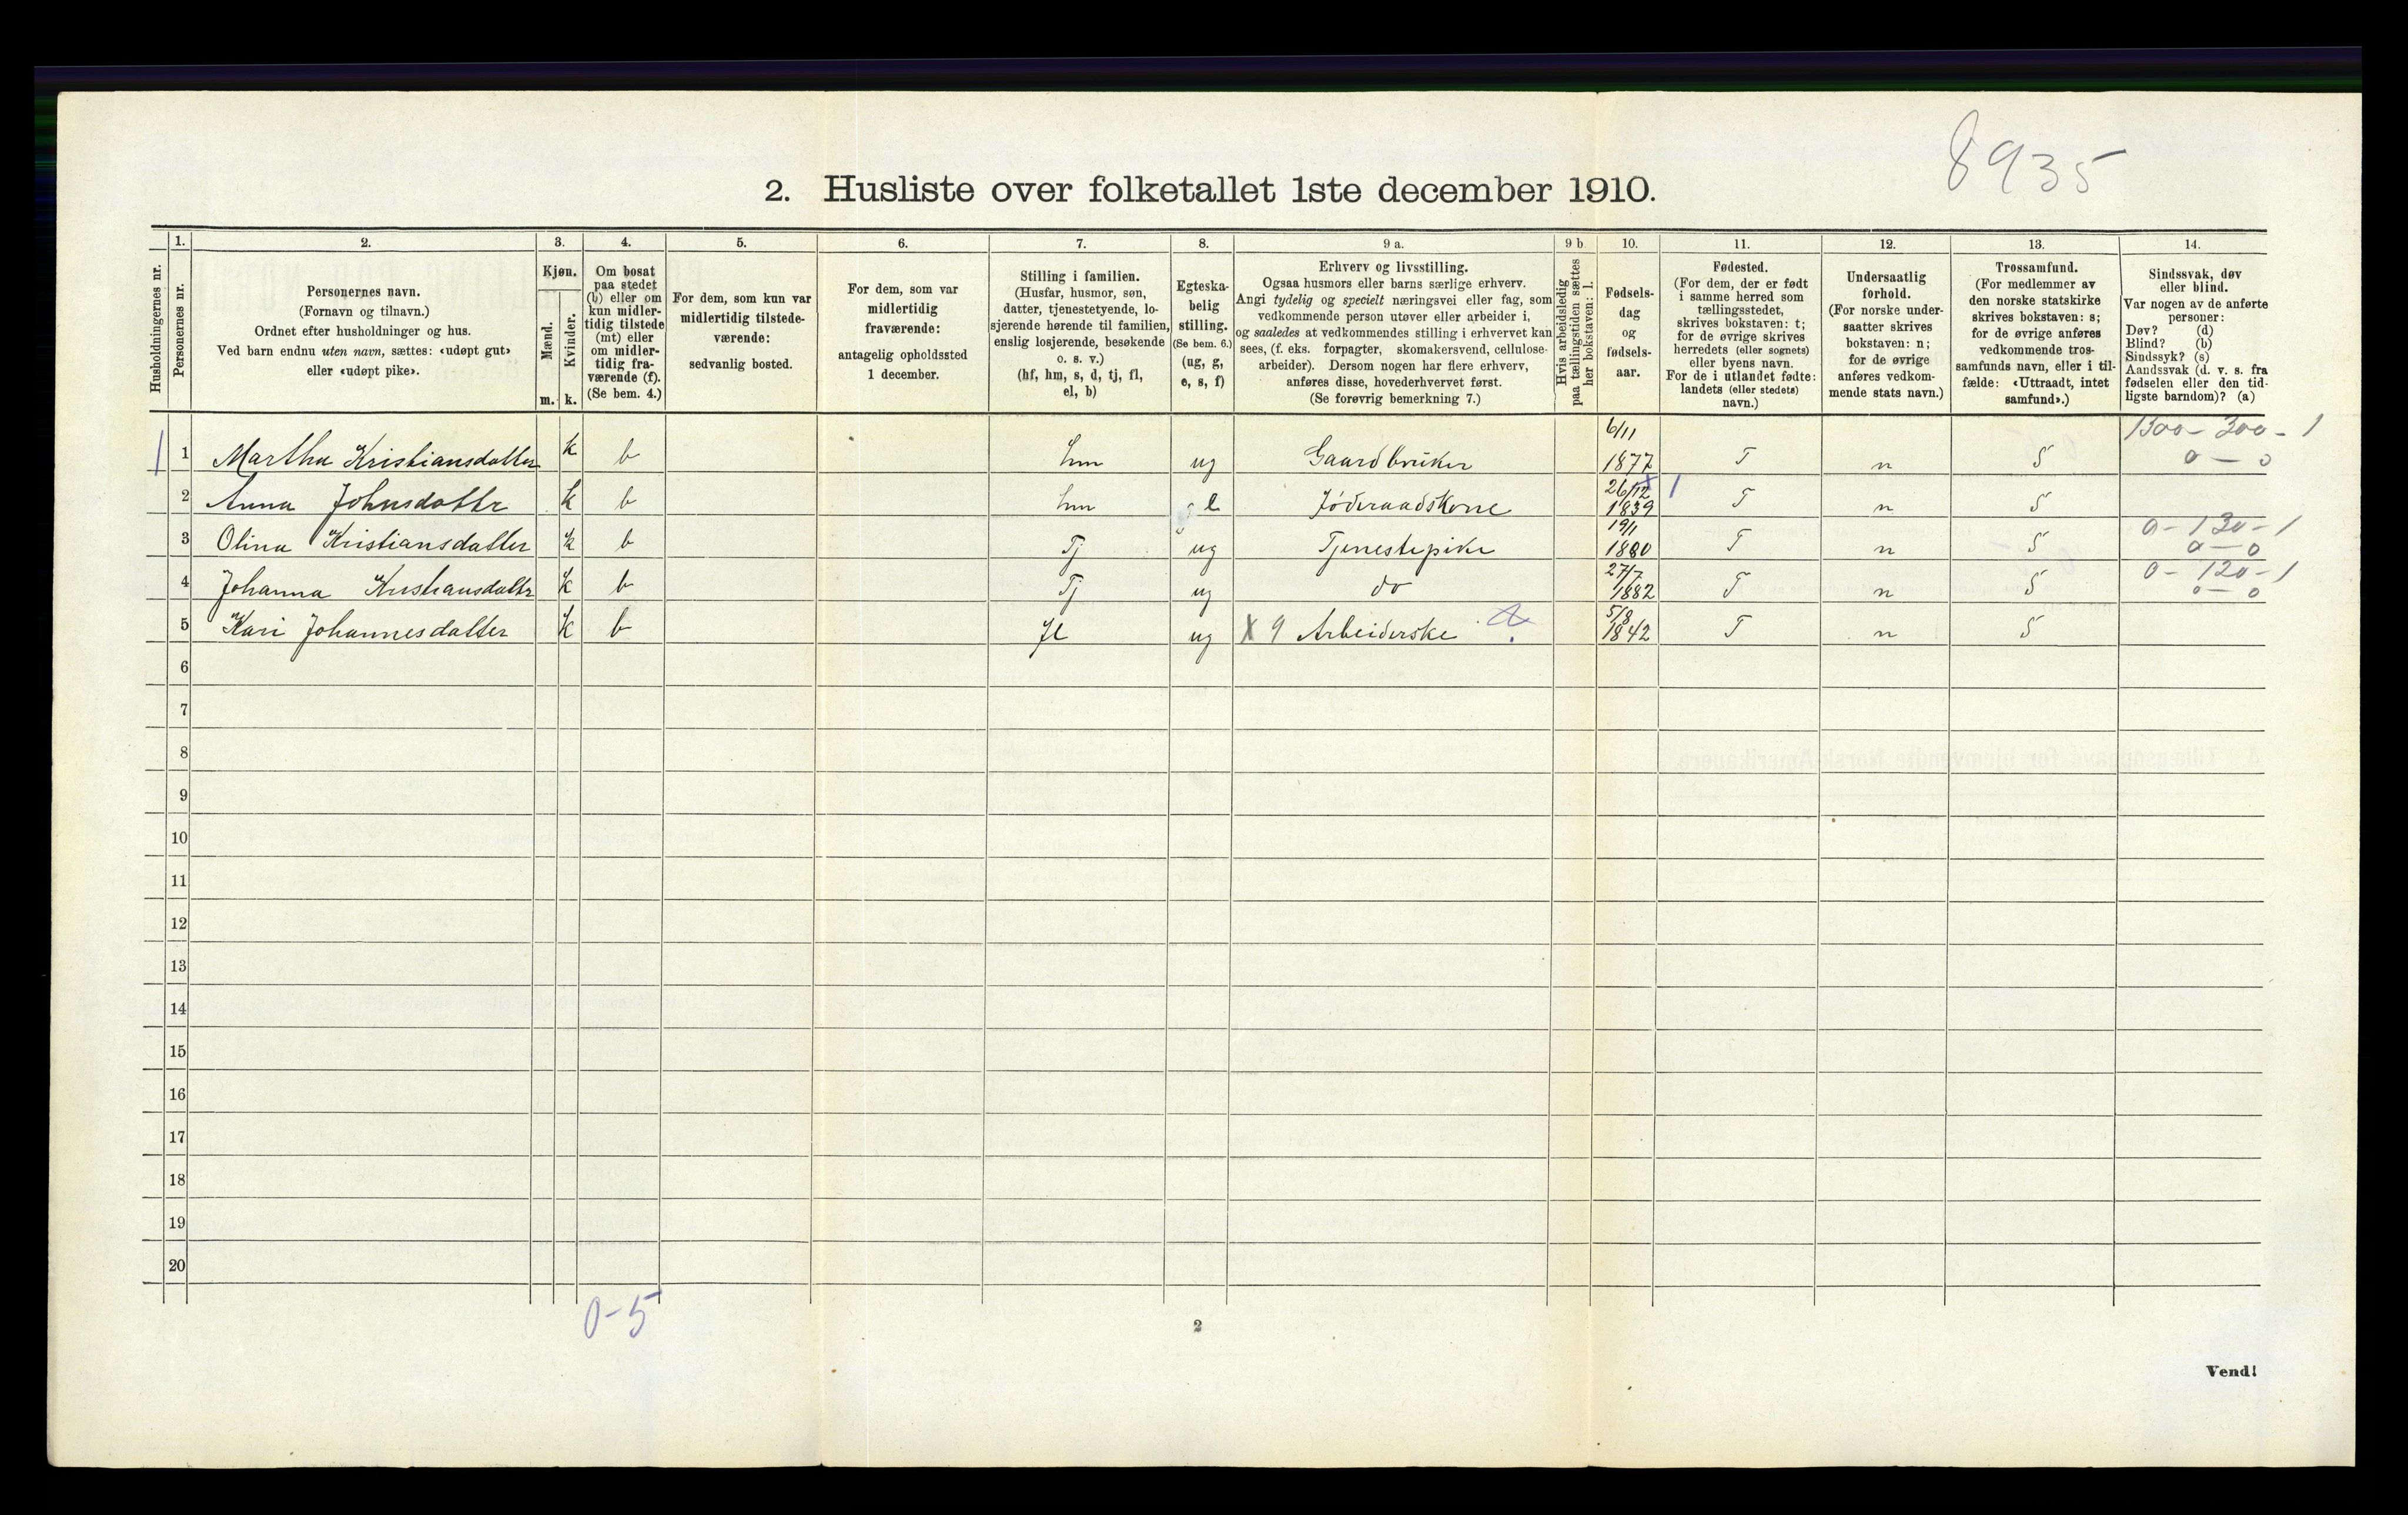 8935
2. Husliste over folketallet 1ste december 1910.
Husholdningernes nr.
1.
Personernes nr.
2.
Personernes navn.
(Fornavn og tilnavn.)
Ordnet efter husholdninger og hus.
Ved barn endnu uten navn, sættes: «udøpt gut»
eller «udøpt pike».
3.
Kjøn.
Mænd.
Kvinder.
m. k.
4.
Om bosat
paa stedet
(b) eller om
kun midler-
tidig tilstede
(mt) eller
om midler-
tidig fra-
værende (f).
(Se bem. 4.)
5.
For dem, som kun var
midlertidig tilstede-
værende:
sedvanlig bosted.
6.
For dem, som var
midlertidig
fraværende:
antagelig opholdssted
1 december.
7.
Stilling i familien.
(Husfar, husmor, søn,
datter, tjenestetyende, lo-
sjerende hørende til familien,
enslig losjerende, besøkende
o. s. v.)
(hf, hm, s, d, tj, fl,
el, b)
8.
Egteska-
belig
stilling.
(Se bem. 6.)
(ug, g,
e, s, f)
9 a.
Erhverv og livsstilling.
Ogsaa husmors eller barns særlige erhverv.
Angi tydelig og specielt næringsvei eller fag, som
vedkommende person utøver eller arbeider i,
og saaledes at vedkommendes stilling i erhvervet kan
sees, (f. eks. forpagter, skomakersvend, cellulose-
arbeider). Dersom nogen har flere erhverv,
anføres disse, hovederhvervet først.
(Se forøvrig bemerkning 7.)
9 b
Hvis arbeidsledig
paa tællingstiden sættes
her bokstaven: l.
10.
Fødsels-
dag
og
fødsels-
aar.
11.
Fødested.
(For dem, der er født
i samme herred som
tællingsstedet,
skrives bokstaven: t;
for de øvrige skrives
herredets (eller sognets)
eller byens navn.
For de i utlandet fødte:
landets (eller stedets)
navn.)
12.
Undersaatlig
forhold.
(For norske under-
saatter skrives
bokstaven: n;
for de øvrige
anføres vedkom-
mende stats navn.)
13.
Trossamfund.
(For medlemmer av
den norske statskirke
skrives bokstaven: s;
for de øvrige anføres
vedkommende tros-
samfunds navn, eller i til-
fælde: «Uttraadt, intet
samfund».)
14.
Sindssvak, døv
eller blind.
Var nogen av de anførte
personer:
Døv? (d)
Blind? (b)
Sindssyk? (s)
Aandssvak (d. v. s. fra
fødselen eller den tid-
ligste barndom)? (a)
1 1 Martha Kristiansdatter k b hm ug Gaardbruker 6/11 1877 T n S 1300 - 300 - 1 0 — 0
2 Anna Johnsdattr k b hm e Føderaadskone 26/12 1839 1 T n S
3 Olina Kristiansdatter k b Tj ug Tjenestepike 19/1 1880 T n S 0 - 130 - 1 0 — 0
4 Johanna Kristiansdattr k b Tj ug do 27/7 1882 T n S 0 - 120 - 1 0 — 0
5 Kari Johannesdatter k b fl ug X 9 Arbeiderske 5/8 1842 T n S
6
7
8
9
10
11
12
13
14
15
16
17
18
19
20
0-5
2
Vend!